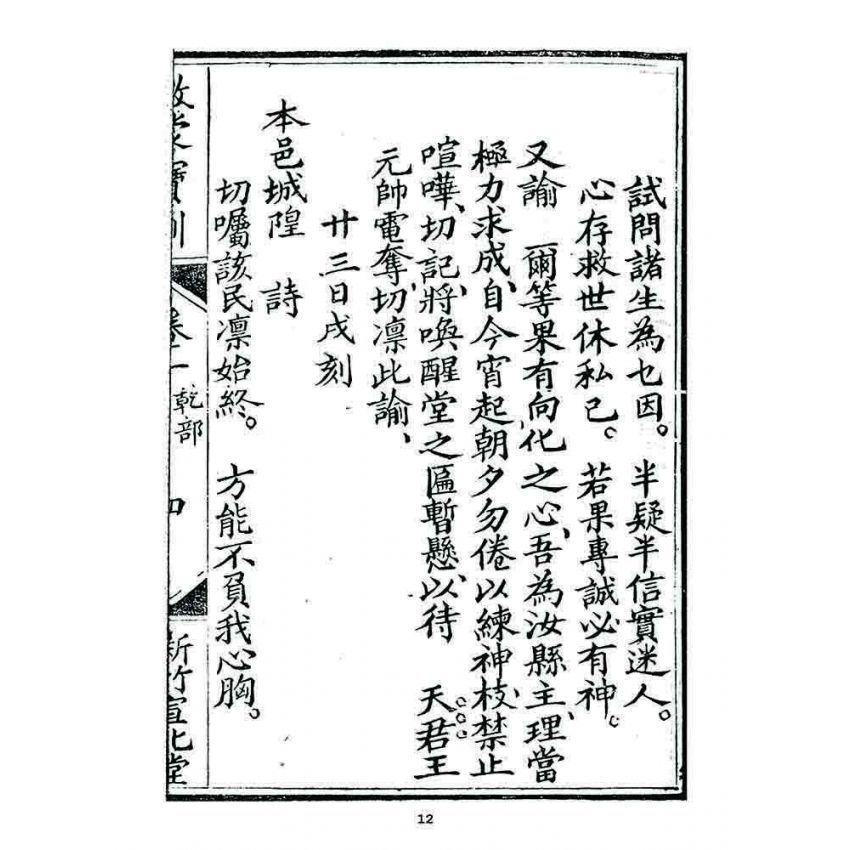 試問諸生為乜因。　半疑半信實迷人。
心存救世休私己。　若果專誠必有神。
又諭　爾等果有向化之心、吾為汝縣主、理當
極力求成、自今宵起朝夕勿倦以練神枝、禁止
喧嘩、切記、將喚醒堂之匾暫懸、以待　天君王
元帥電奪、切凜此諭、
廿三日戌刻
本邑城隍　詩
切囑該民凜始終。　方能不負我心胸。
寶
乾部
新竹宣化堂
12